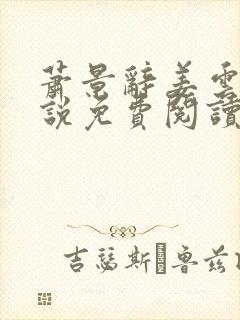 蕭景辭姜雲
說免費閱讀
吉瑟斯·魯茲